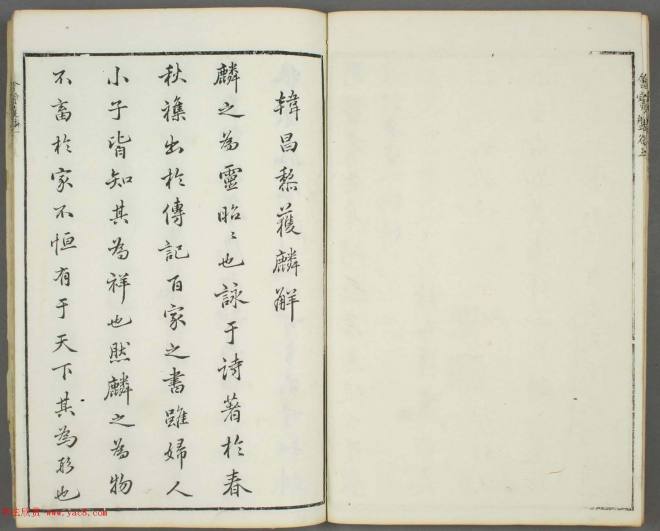 韓昌黎獲麟解
麟之為靈昭〻也詠于詩著於春
秋襍出於傳記百家之書雖婦人
小子皆知其為祥也然麟之為物
不畜於家不恒有于天下其為形也
www.yac8.com